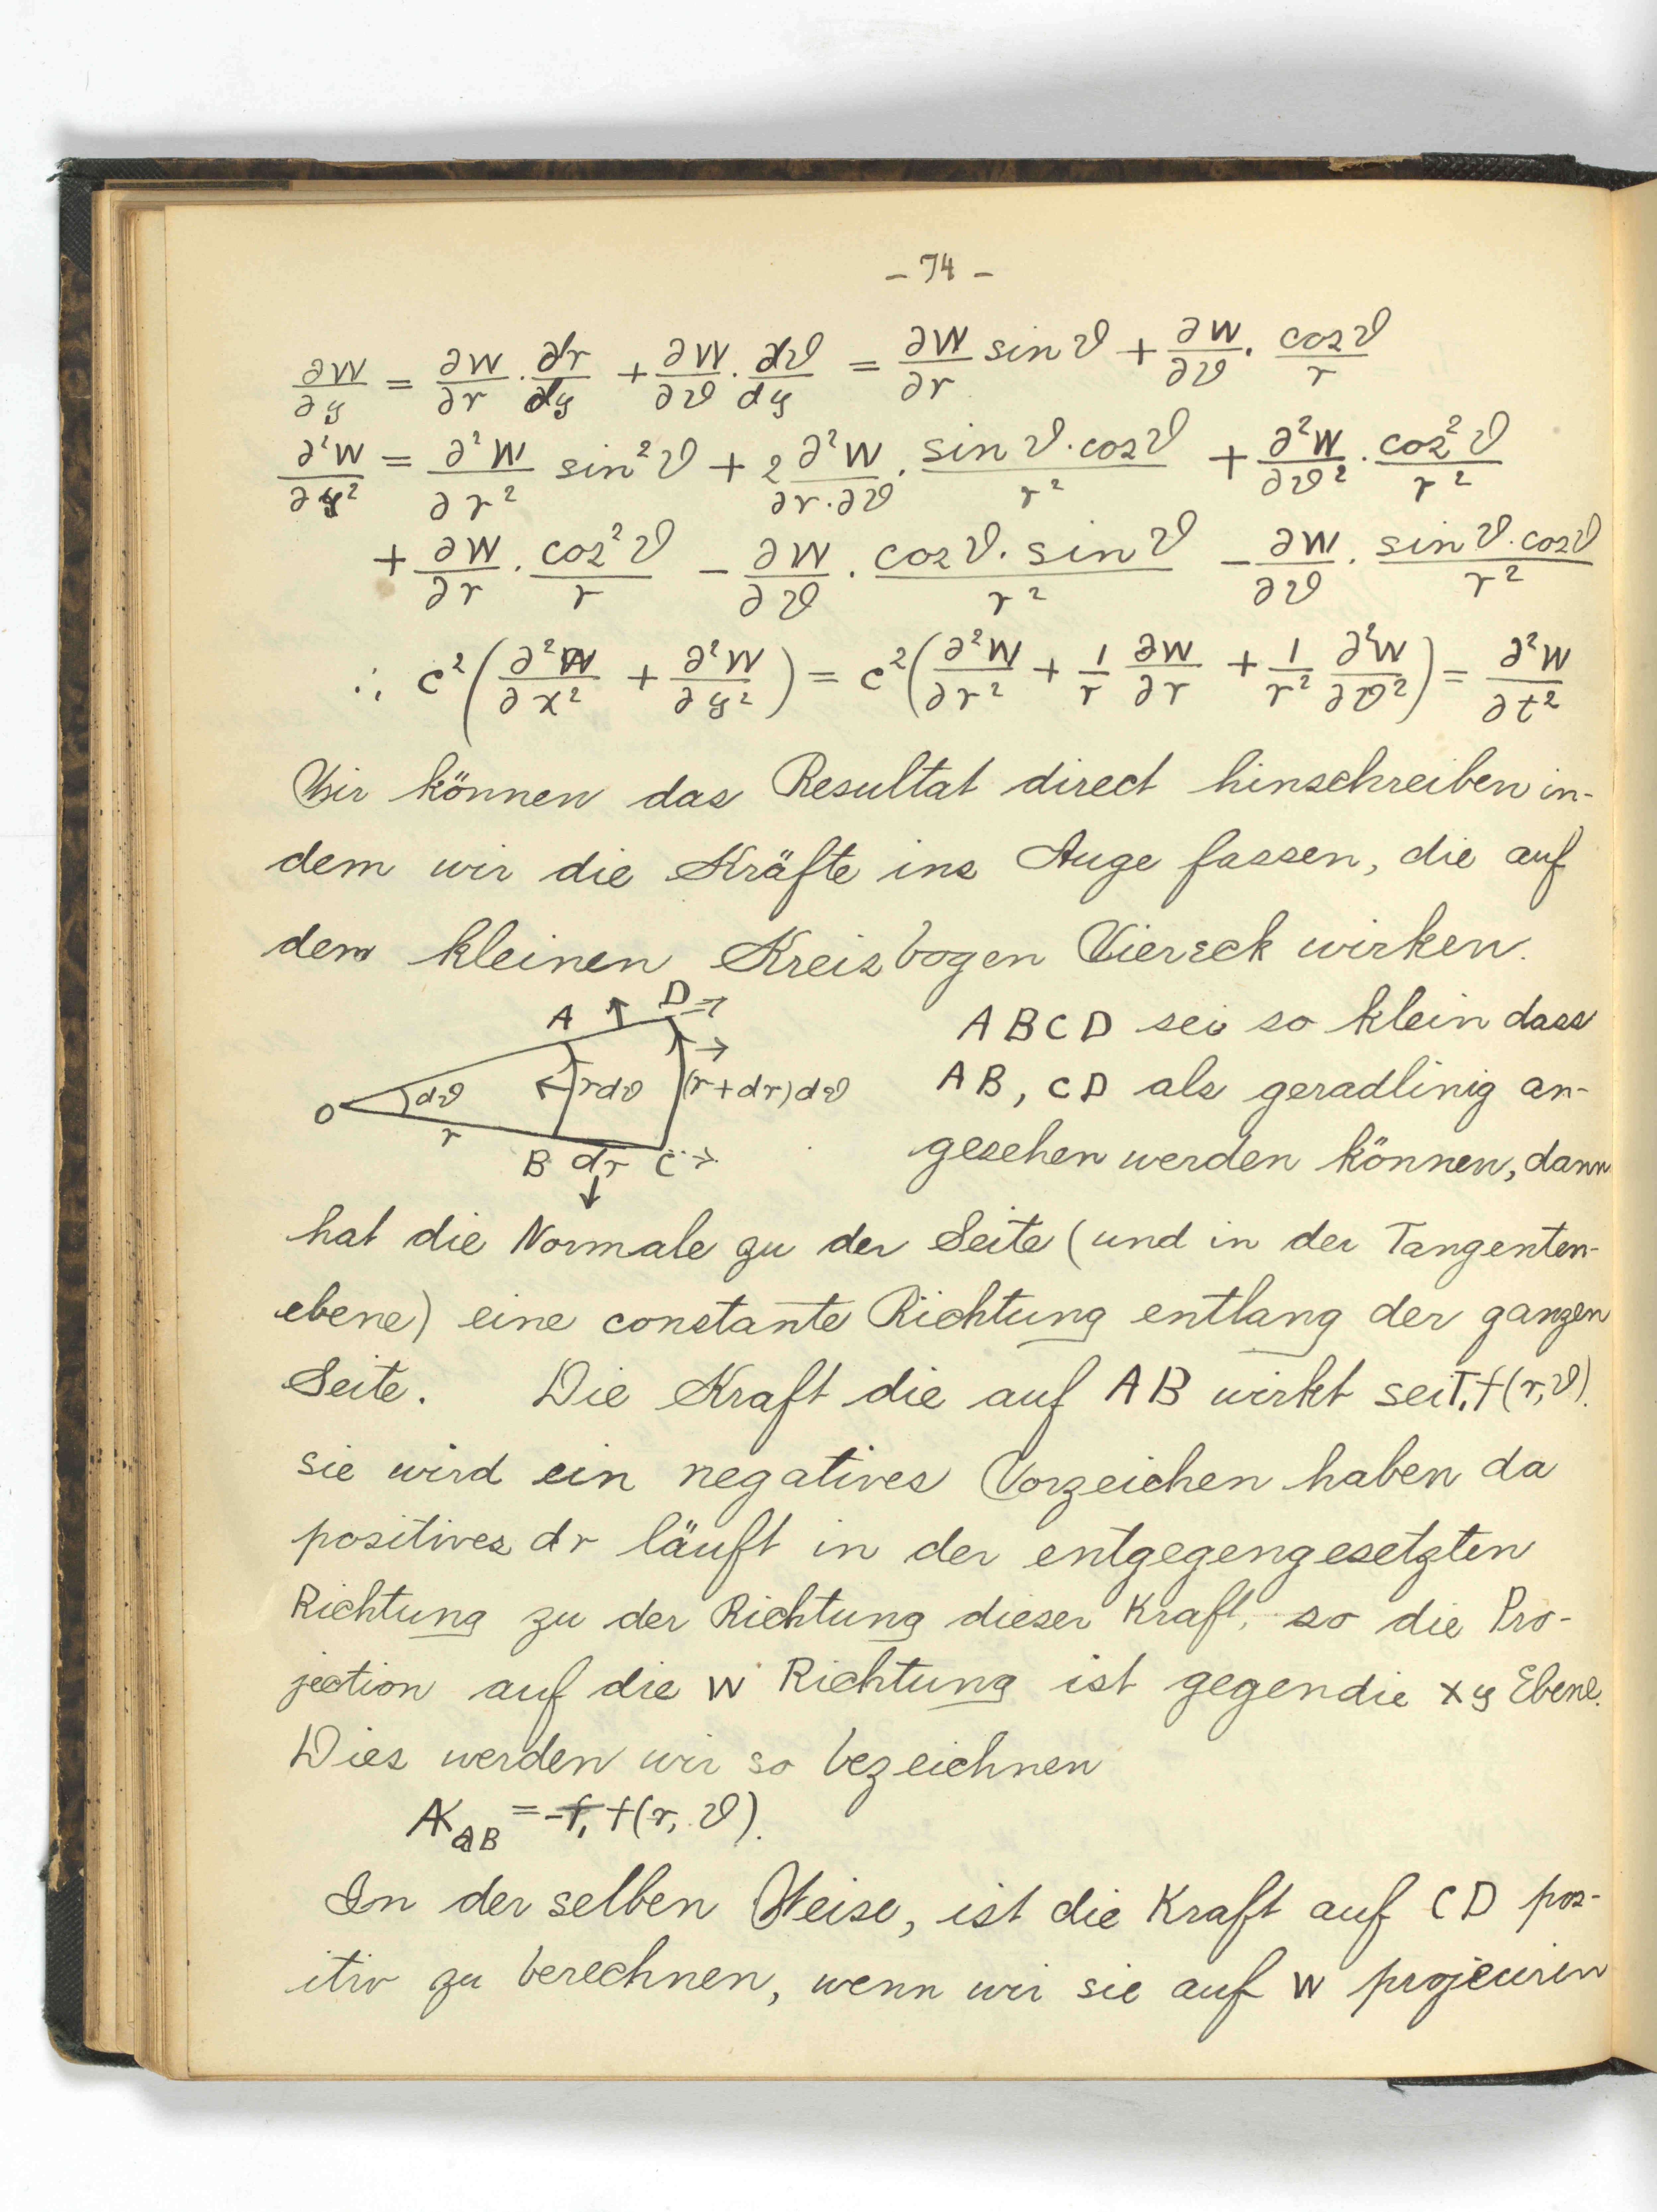 - 74 -
∂W/∂y = ∂W/∂r · ∂r/∂y + ∂W/∂ϑ · ∂ϑ/∂y = ∂W/∂r sin ϑ + ∂W/∂ϑ · cos ϑ/r
∂²W/∂y² = ∂²W/∂r² sin²ϑ + 2 ∂²W/∂r·∂ϑ · sin ϑ · cos ϑ/r² + ∂²W/∂ϑ² · cos²ϑ/r²
+ ∂W/∂r · cos²ϑ/r - ∂W/∂ϑ · cos ϑ · sin ϑ/r² - ∂W/∂ϑ · sin ϑ · cos ϑ/r²
∴ c²(∂²W/∂x² + ∂²W/∂y²) = c²(∂²W/∂r² + 1/r ∂W/∂r + 1/r² ∂²W/∂ϑ²) = ∂²W/∂t²
Wir können das Resultat direct hinschreiben in-
dem wir die Kräfte ins Auge fassen, die auf
dem kleinen Kreisbogen Viereck wirken.
A D
O dϑ rdϑ (r+dr)dϑ
r
B dr C
A B C D sei so klein dass
A B, C D als geradlinig an-
gesehen werden können, dann
hat die Normale zu der Seite (und in der Tangenten-
ebene) eine constante Richtung entlang der ganzen
Seite. Die Kraft die auf A B wirkt sei T₁f(r,ϑ).
sie wird ein negatives Vorzeichen haben da
positives dr läuft in der entgegengesetzten
Richtung zu der Richtung dieser Kraft, so die Pro-
jection auf die W Richtung ist gegen die xy Ebene.
Dies werden wir so bezeichnen
K_AB = - f(r, ϑ).
In der selben Weise, ist die Kraft auf C D pos-
itiv zu berechnen, wenn wir sie auf W projeciren